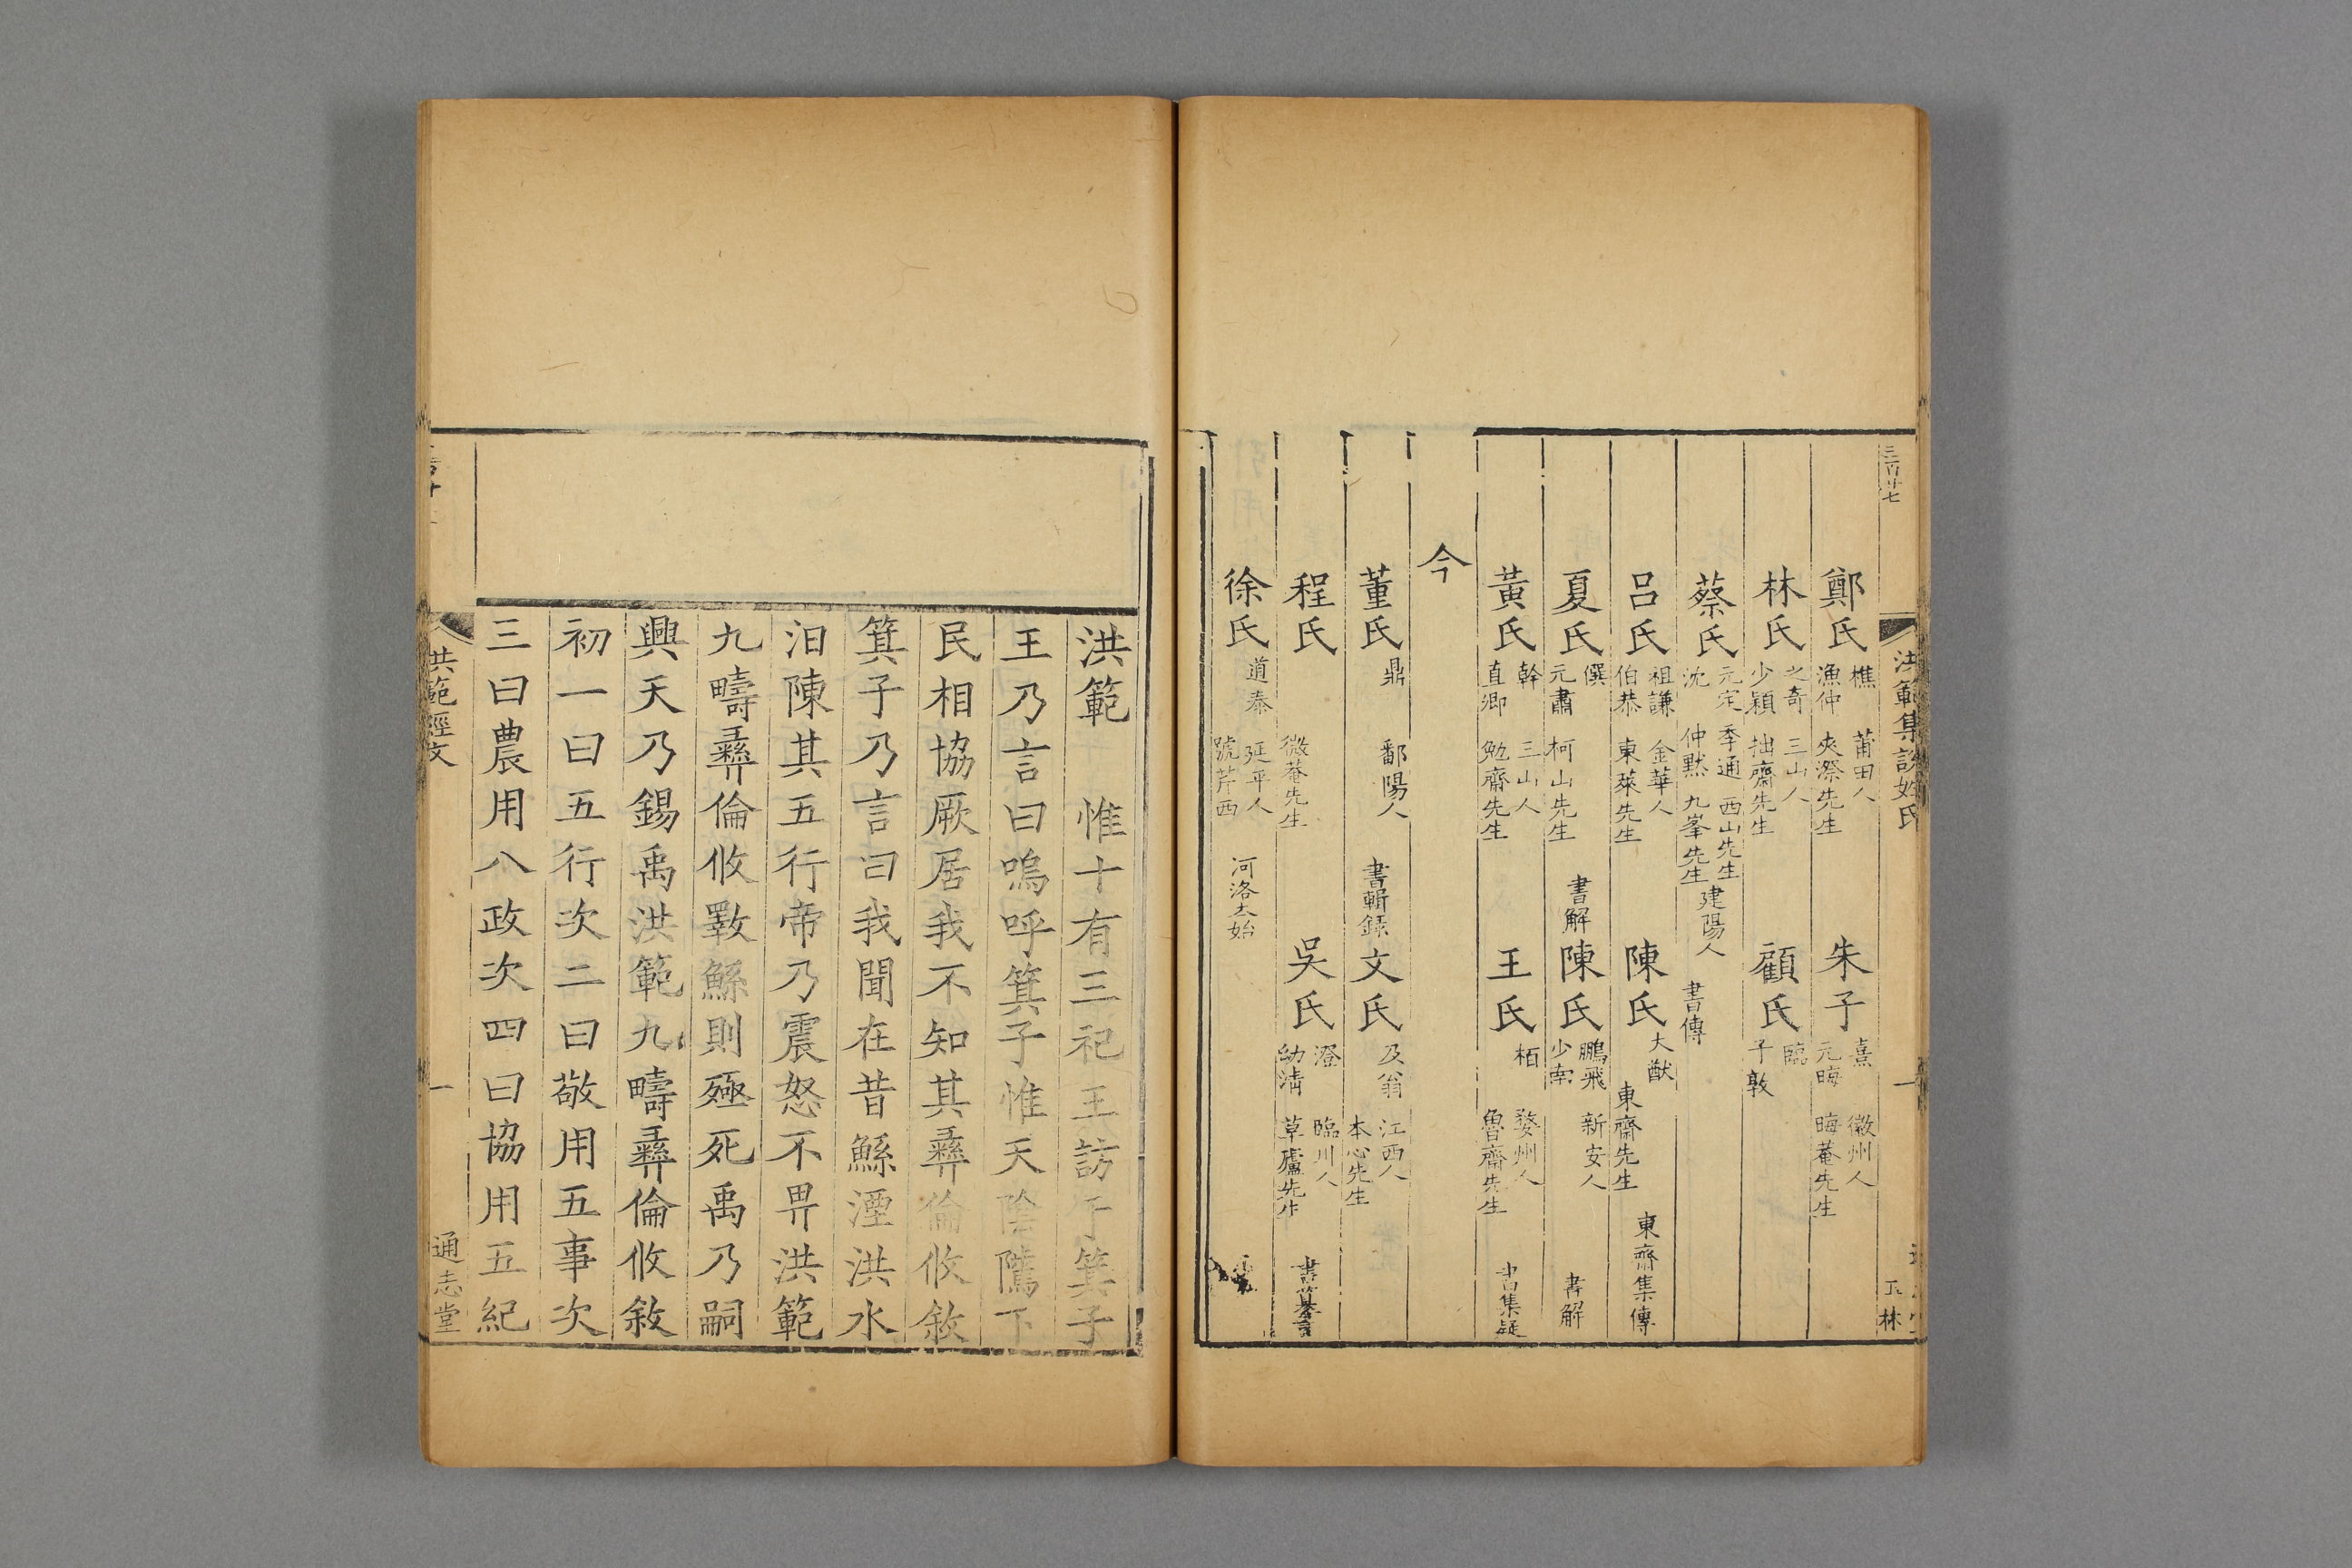 三百廿七
洪範集說姓氏
玉林
鄭氏 樵 漁仲 莆田人 夾漈先生 朱子 熹 元晦 徽州人 晦菴先生
林氏 之奇 少穎 三山人 拙齋先生 顧氏 臨 子敦
蔡氏 元定 季通 西山先生 沈 仲黙 九峯先生 建陽人 書傳
呂氏 祖謙 伯恭 金華人 東萊先生 陳氏 大猷 東齋先生 東齋集傳
夏氏 僎 元肅 柯山先生 書解 陳氏 鵬飛 少南 新安人 書解
黃氏 幹 直卿 三山人 勉齋先生 王氏 栢 婺州人 魯齋先生 書集疑
今
董氏 鼎 鄱陽人 書輯錄 文氏 及翁 江西人 本心先生
程氏 微菴先生 吳氏 澄 幼清 臨川人 草廬先生 書纂言
徐氏 道泰 延平人 號芹西 河洛太始
洪範 惟十有三祀王訪于箕子
王乃言曰嗚呼箕子惟天陰隲下
民相協厥居我不知其彝倫攸敘
箕子乃言曰我聞在昔鯀湮洪水
汩陳其五行帝乃震怒不畀洪範
九疇彝倫攸斁鯀則殛死禹乃嗣
興天乃錫禹洪範九疇彝倫攸敘
初一曰五行次二曰敬用五事次
三曰農用八政次四曰協用五紀
洪範經文
一
通志堂